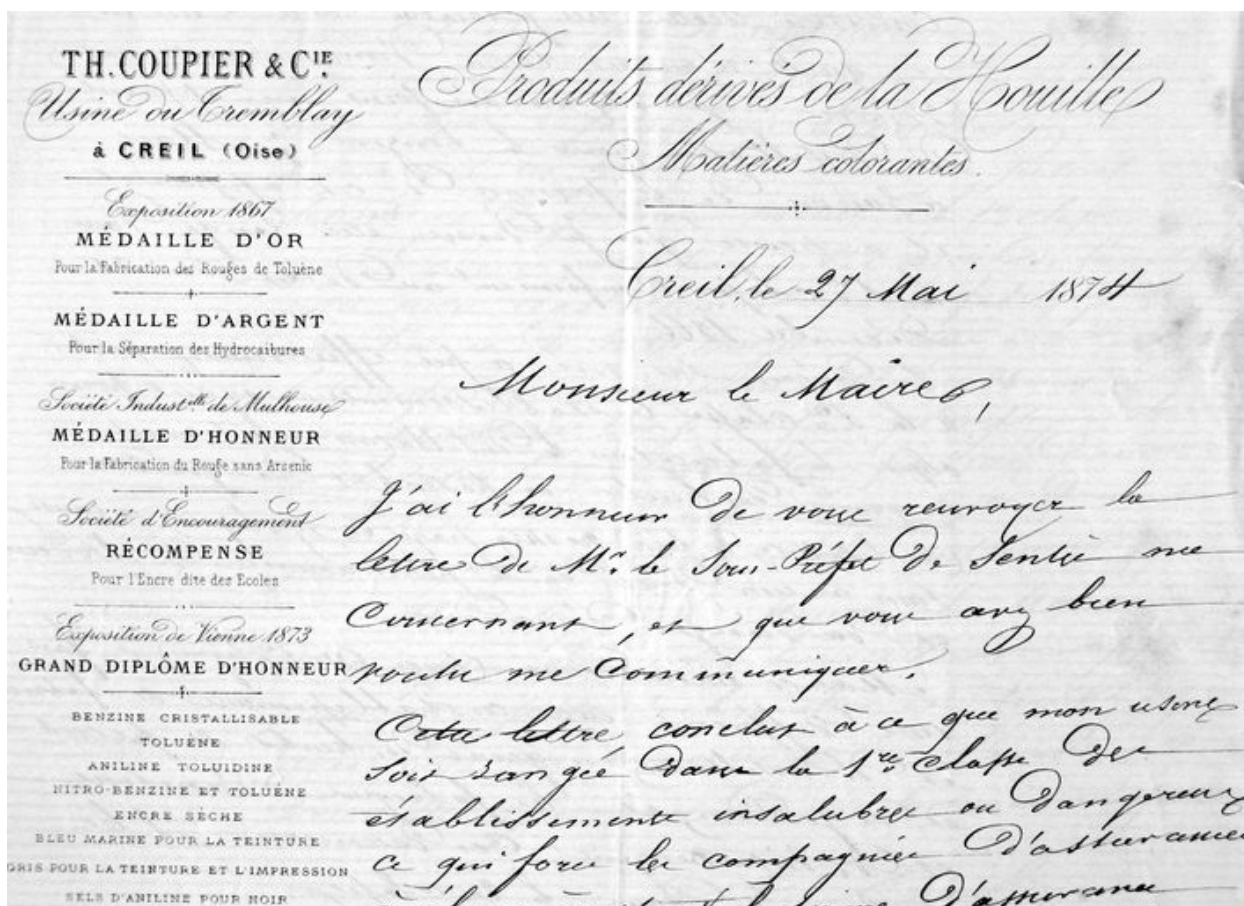 TH. COUPIER & CIE.
Usine du Tremblay
à CREIL (Oise)
Exposition 1867
MÉDAILLE D'OR
Pour la Fabrication des Rouges de Toluène
MÉDAILLE D'ARGENT
Pour la Séparation des Hydrocarbures
Société Indust.elle de Mulhouse
MÉDAILLE D'HONNEUR
Pour la Fabrication du Rouge sans Arsenic
Société d'Encouragement
RÉCOMPENSE
Pour l'Encre dite des Ecoles
Exposition de Vienne 1873
GRAND DIPLÔME D'HONNEUR
BENZINE CRISTALLISABLE
TOLUÈNE
ANILINE TOLUIDINE
NITRO-BENZINE ET TOLUÈNE
ENCRE SÈCHE
BLEU MARINE POUR LA TEINTURE
GRIS POUR LA TEINTURE ET L'IMPRESSION
SELS D'ANILINE POUR NOIR
Produits dérivés de la Houille
Matières colorantes.
Creil, le 27 Mai 1874
Monsieur le Maire,
J'ai l'honneur de vous renvoyer la
lettre de Mr. le Sous-Préfet de Senlis me
concernant, et que vous avez bien
voulu me communiquer.
Cette lettre, conclut à ce que mon usine
soit rangée dans la 1re. classe des
établissements insalubres ou dangereux
ce qui force les compagnies d'assurance
d'assurance